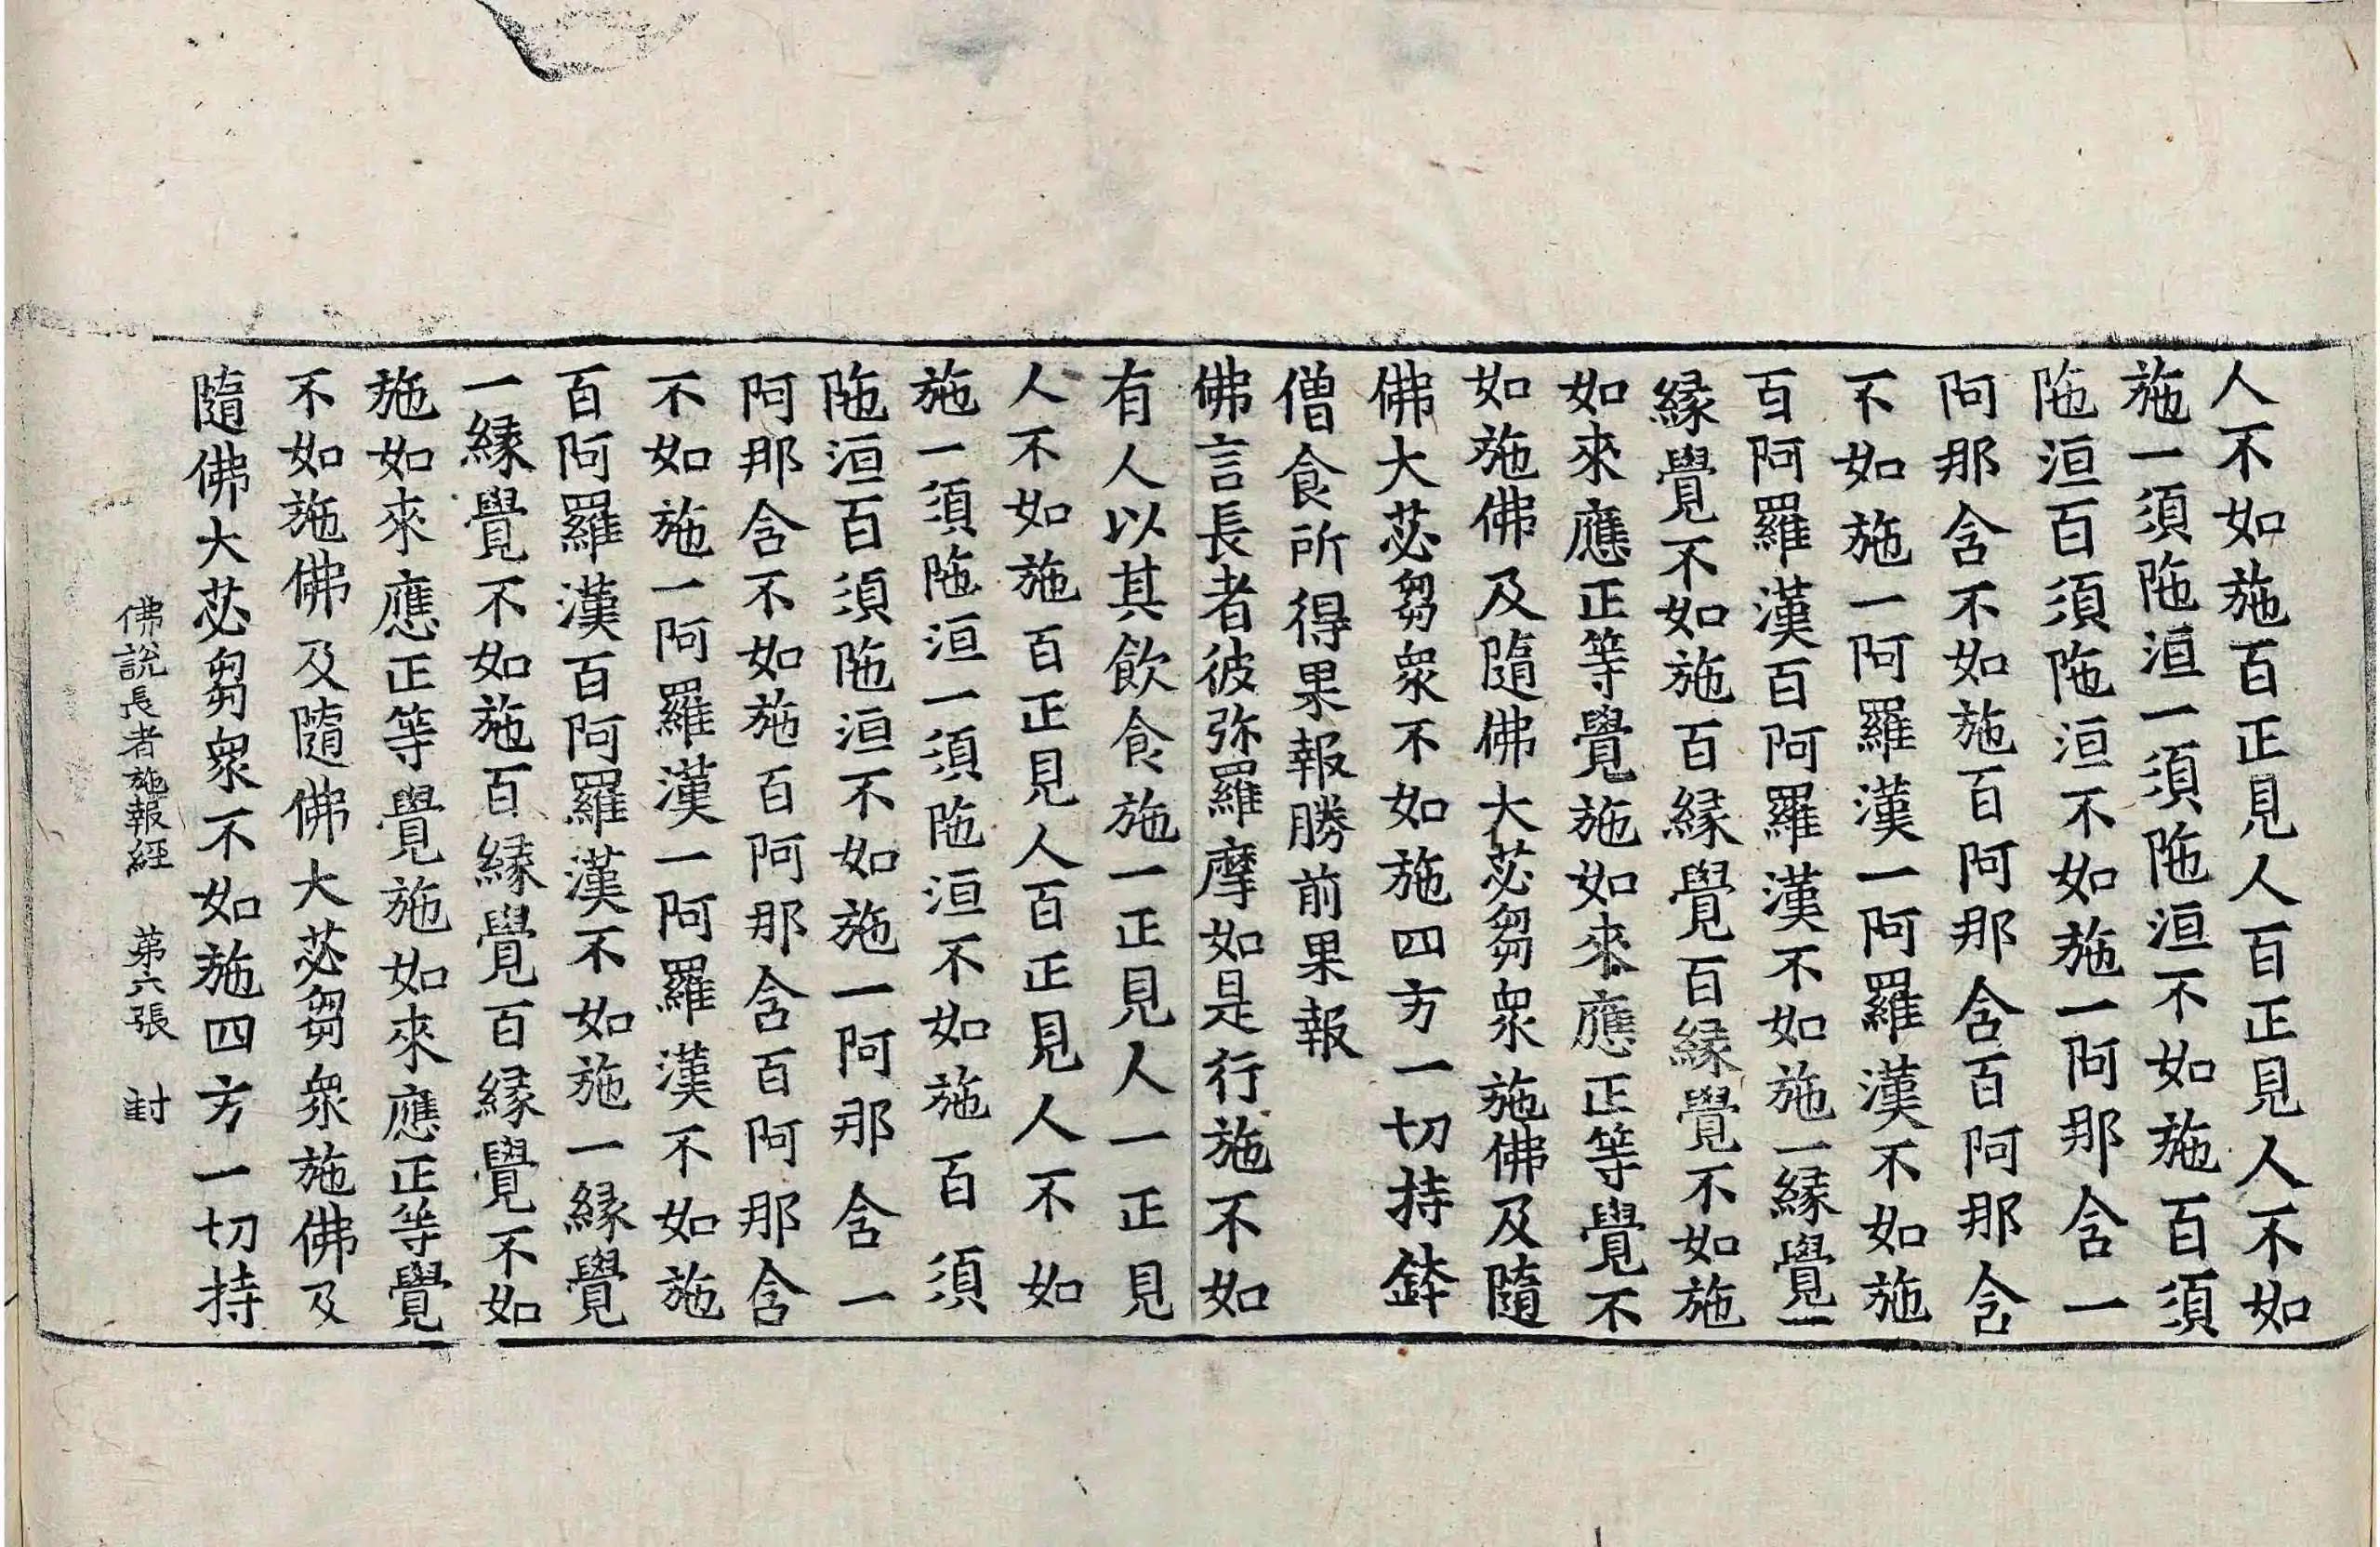 人不如施百正見人百正見人不如
施一須陁洹一須陁洹不如施百須
陁洹百須陁洹不如施一阿那含一
阿那含不如施百阿那含百阿那含
不如施一阿羅漢一阿羅漢不如施
百阿羅漢百阿羅漢不如施一緣覺一
緣覺不如施百緣覺百緣覺不如施
如來應正等覺施如來應正等覺不
如施佛及隨佛大苾芻衆施佛及隨
佛大苾芻衆不如施四方一切持鉢
僧食所得果報勝前果報
佛言長者彼弥羅摩如是行施不如
有人以其飲食施一正見人一正見
人不如施百正見人百正見人不如
施一須陁洹一須陁洹不如施百須
陁洹百須陁洹不如施一阿那含一
阿那含不如施百阿那含百阿那含
不如施一阿羅漢一阿羅漢不如施
百阿羅漢百阿羅漢不如施一緣覺
一緣覺不如施百緣覺百緣覺不如
施如來應正等覺施如來應正等覺
不如施佛及隨佛大苾芻衆施佛及
隨佛大苾芻衆不如施四方一切持
佛說長者施報經　第六張　封